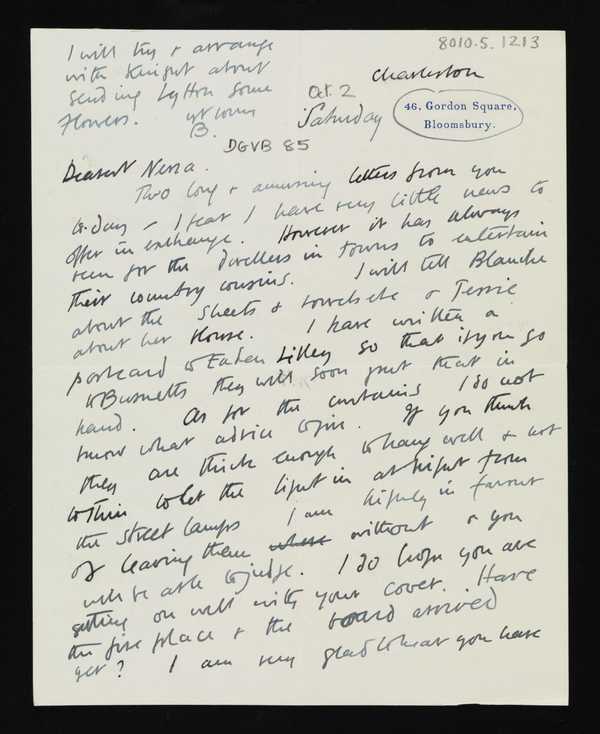 I will try & arrange
with Knight about
sending Lytton some
Flowers. yr loving
B.
8010.5.1213
Charleston
Oct. 2
Saturday
46, Gordon Square,
Bloomsbury.
DGVB 85
Dearest Nessa.
Two long & amusing letters from you
to-day – I fear I have very little news to
offer in exchange. However it has always
been for the dwellers in towns to entertain
their country cousins. I will tell Blanche
about the sheets & towels etc & Jessie
about her House. I have written a
postcard to Eaden Lilley so that if you go
to Burnetts they will soon put that in
hand. As for the curtains I do not
know what advice to give. If you think
they are thick enough to hang well & not
to thin to let the light in at night from
the street lamps I am highly in favour
of leaving them without & you
will be able to judge. I do hope you are
getting on well with your cover. Have
the fire place & the board arrived
yet? I am very glad to hear you have